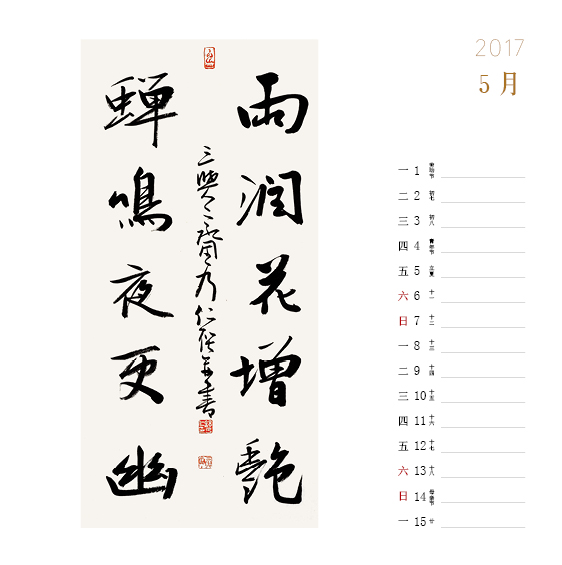 雨润花增艳
蝉鸣夜更幽
2017
5 月
一 1 劳动节
二 2 初七
三 3 初八
四 4 青年节
五 5 立夏
六 6 十一
日 7 十二
一 8 十三
二 9 十四
三 10 十五
四 11 十六
五 12 十七
六 13 十八
日 14 母亲节
一 15 廿